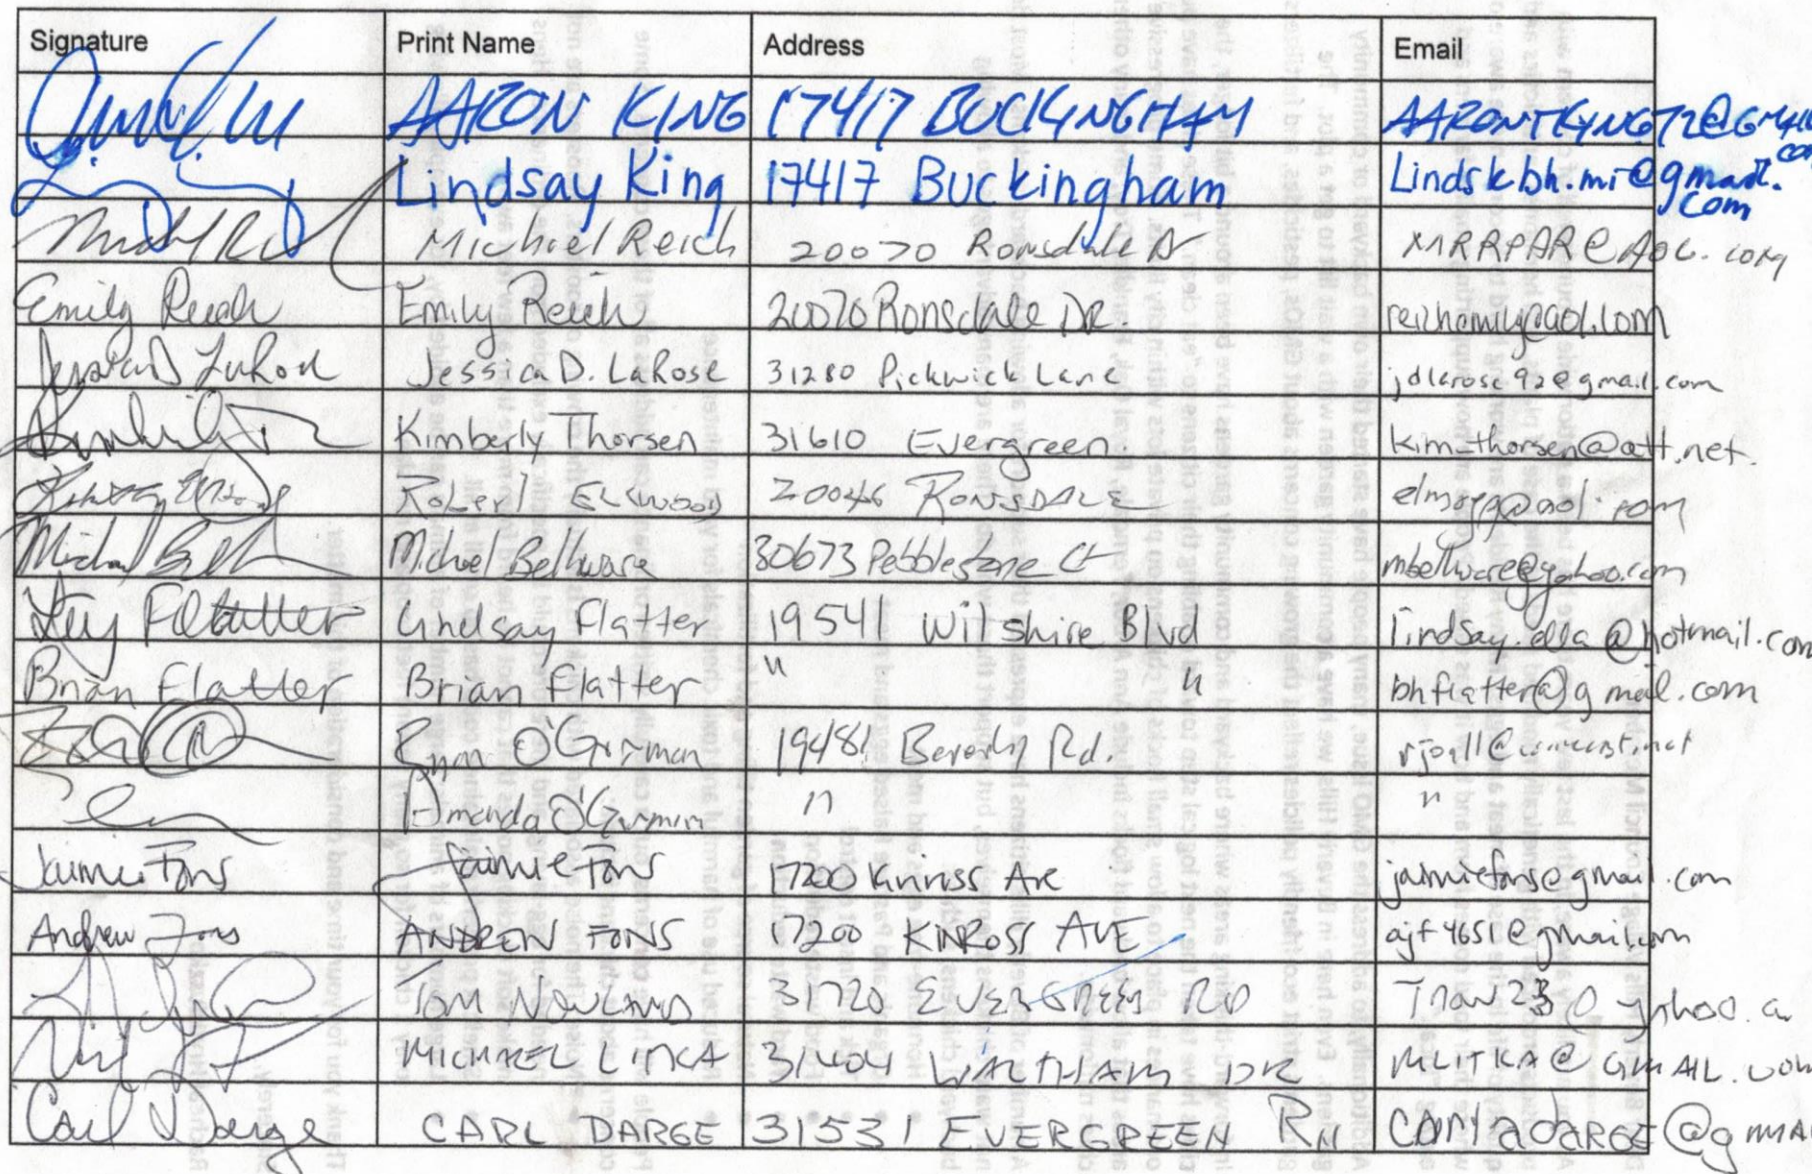 Signature Print Name Address Email
AARON KING 17417 BUCKINGHAM AARONTKING72@GMAIL.com
Lindsay King 17417 Buckingham Lindskbh.mi@gmail.com
Michael Reich 20070 Ronsdale Dr MRRPAR@AOL.com
Emily Reich Emily Reich 20070 Ronsdale DR. reichemily@aol.com
Jessica D LaRose Jessica D. LaRose 31280 Pickwick Lane jdlarose92@gmail.com
Kimberly Thorsen 31610 Evergreen. kim_thorsen@att.net.
Robert ELLWOOD 20046 RONSDALE
Michael Bellware 30673 Pebblestone Ct mbellware@yahoo.com
Flatter Lindsay Flatter 19541 Wilshire Blvd lindsay.ella@hotmail.com
Brian Flatter Brian Flatter " " bhflatter@gmail.com
Ryan O'Gorman 19481 Beverly Rd. rjoall@comcast.net
Amanda O'Gorman " "
Jaimie Fons Jaimie Fons 17200 Kinross Ave jaimiefons@gmail.com
Andrew Fons ANDREW FONS 17200 KINROSS AVE ajf4651@gmail.com
TOM NOWLAND 31720 EVERGREEN RD
MICHAEL LITKA 31404 WALTHAM DR MLITKA@GMAIL.COM
Carl Darge CARL DARGE 31531 EVERGREEN RD